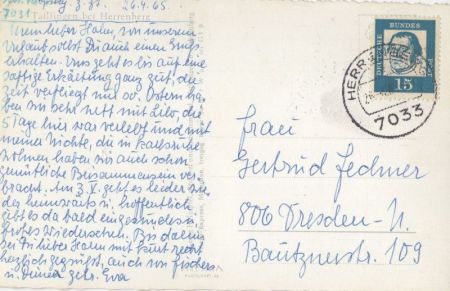 26.4.65.
7031 Tailfingen bei Herrenberg
Mein lieber Hahn, von unserem
Urlaub sollst Du auch einen Gruß
erhalten. Uns geht es bis auf eine
saftige Erkältung ganz gut, die
Zeit verfliegt nur so. Ostern
haben wir sehr nett mit Lilo, die
5 Tage hier war verlebt und mit
meiner Nichte, die in Karlsruhe
wohnen, haben wir auch schon
gemütliche Zusammensein
bracht. Am 3.V. geht es leider wie
der heimwärts u. hoffentlich
gibt es da bald ein gesundes u.
frohes Wiedersehen. Bis dahin
sei Du lieber Hahn mit Kurt recht
herzlich gegrüßt, auch von
u. Deiner Eva
DEUTSCHE BUNDESPOST
15
HERRENBERG
7033
Frau
Gertrud Fechner
806 Dresden-N.
Bautznerstr. 109